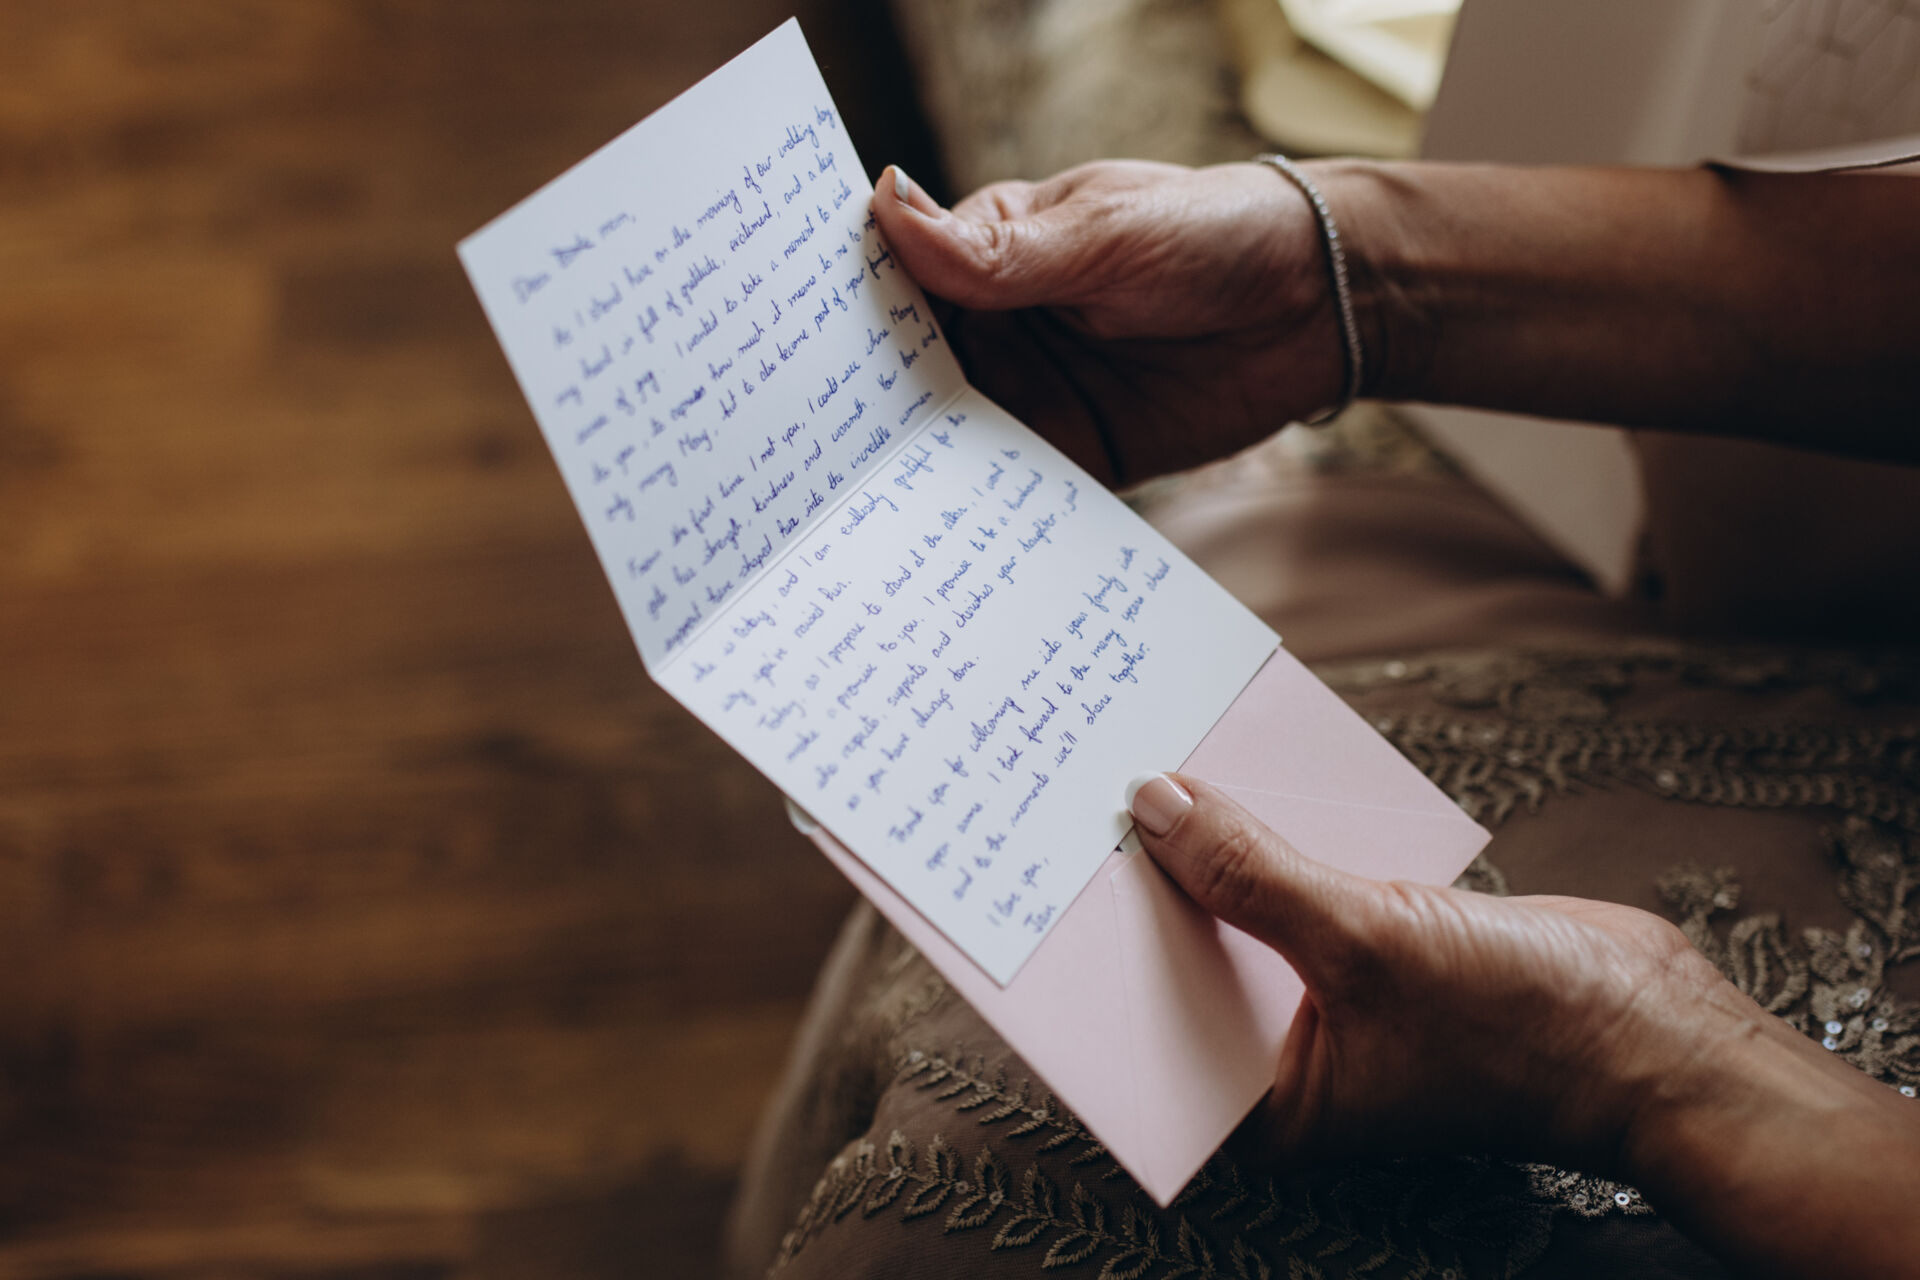 Dear mom,
As I stand here on the morning of our wedding day,
my heart is full of gratitude, excitement, and a deep
sense of joy. I wanted to take a moment to write
to you, to express how much it means to me to not
only marry Mary, but to also become part of your family.
From the first time I met you, I could see where Mary
got her strength, kindness and warmth. Your love and
support have shaped her into the incredible women
she is today, and I am endlessly grateful for the
way you've raised her.
Today, as I prepare to stand at the altar, I want to
make a promise to you. I promise to be a husband
who respects, supports and cherishes your daughter, just
as you have always done.
Thank you for welcoming me into your family with
open arms. I look forward to the many years ahead
and to the moments we'll share together.
I love you,